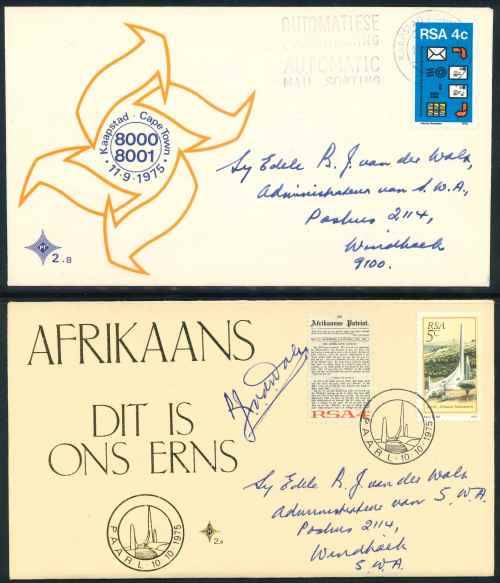 AUTOMATIESE
AUTOMATIC
MAIL SORTING
RSA 4c
Kaapstad · Cape Town
8000
8001
11·9·1975
2.8
Sy Edele B. J. van der Walt,
Administrateur van S.W.A.,
Posbus 2114,
Windhoek
9100.
AFRIKAANS
DIT IS
ONS ERNS
Die Afrikaanse Patriot.
RSA 4c
RSA
5c
PAARL·10·10·1975
PAARL·10·10·1975
2.9
Sy Edele B. J. van der Walt
Administrateur van S.W.A.
Posbus 2114,
Windhoek
S.W.A.